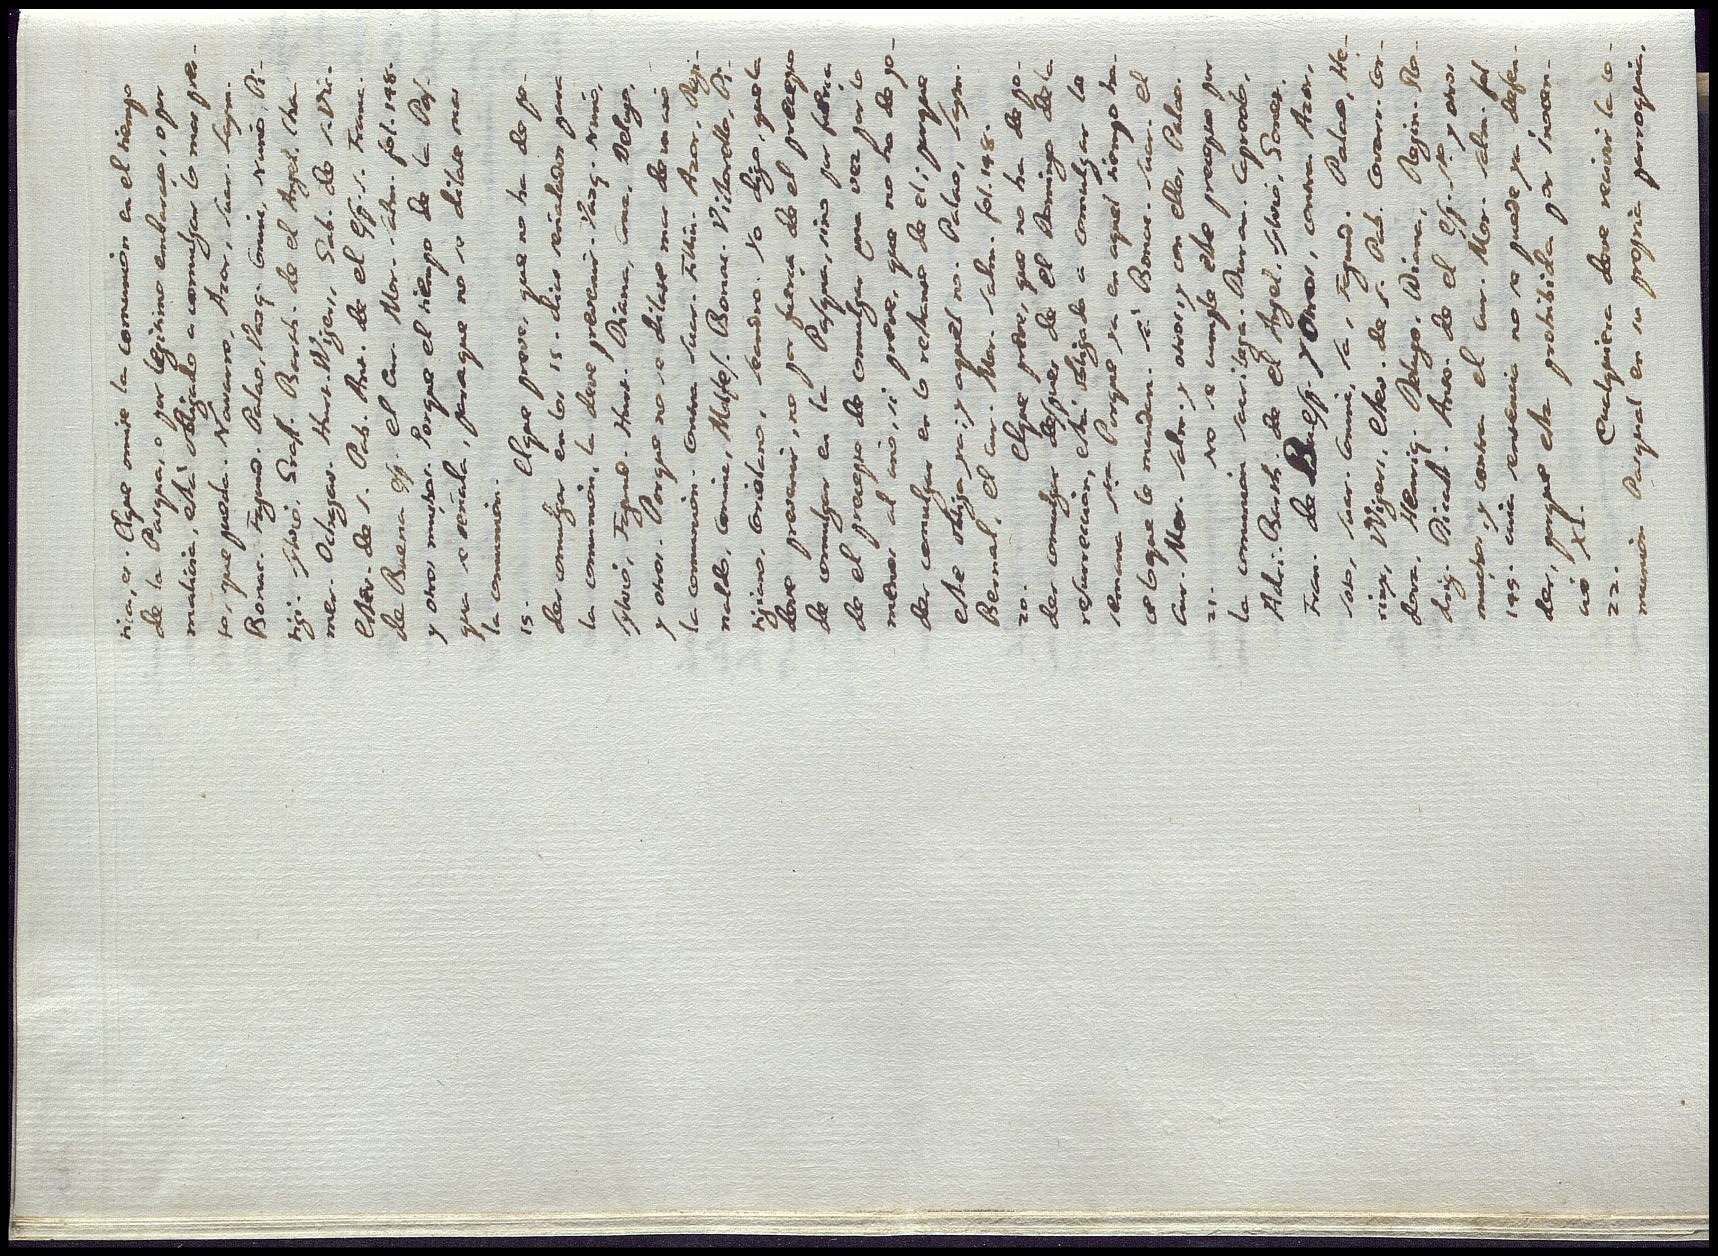 ricia, es. El que omite la comunion en el tiempo
de la Pasqua, o por legitimo embarazo, o por
malicia, està obligado a comulgar lo mas pres-
to, que pueda. Navarro, Azor, Suar. Laym.
Bonac. Fagund. Palao, Vazq. Conin. Nuño,
Silvio, Graff. Barth. de el Angel.
mer. Ochagav. Hurt. Wigers, Gab. de S. Vic.
Esteb. de S. Pab. Ant. de el Esp. S. Franc.
de Buena Esp. el Cur. Mor. Salm. fol. 148.
y otros muchos. Porque el tiempo de la Pas-
qua se señala, paraque no se dilate mas
la comunion.
19. El que preve, que no ha de po-
der comulgar en los 15. dias señalados para
la comunion, la deve prevenir. Vazq. Nuño,
Sylvio, Fagund. Hurt. Diana, Delugo,
y otros. Porque no se dilate mas de un año
la comunion. Contra Suar. Filliu. Azor, Regi-
naldo, Coninc, Bonac. Vittorello,
Coriolano, Leandro. Yo digo, que la
deve prevenir, no por fuerça de el precepto
de comulgar en la Pasqua, sino por fuerça
de el precepto de comulgar una vez por lo
menos al año, si preve, que no ha de po-
der comulgar en lo restante de el; porque
este obliga ya; y aquel no. Palao, Laym.
Bernal, el Cur. Mor. Salm. fol. 148.
20. El que preve, que no ha de po-
der comulgar despues de el Domingo de la
resurreccion, està obligado a comulgar la
semana sta. Porque ya en aquel tiempo ha-
ce lo que le mandan. Sà Bonac. Suar. el
Cur. Mor. Salm. y otros, y con ellos Palao.
21. No se cumple este precepto por
la comunion sacrilega. Duran. Capreolo,
Adri. Barth. de el Angel. Silvio, Gonet,
Fran. de Bu. esp. y Otros, contra Azor,
Soto, Suar. Coninc, Sà, Fagund. Palao, He-
riqz, Wigers, Esteb. de S. Pab. Covarr. Cor-
dova, Henriq. Delugo, Diana, Regin. Ro-
drig. Dicast. Anto. de el Esp. Sto. y otros
muchos; y contra el Cur. Mor. Salm. fol.
149. cuia sentencia no se puede ya defen-
der, porque esta prohibida por inocen-
cio XI.
22. Cualquiera deve recivir la co-
munion Pasqual en su propria parroquia,